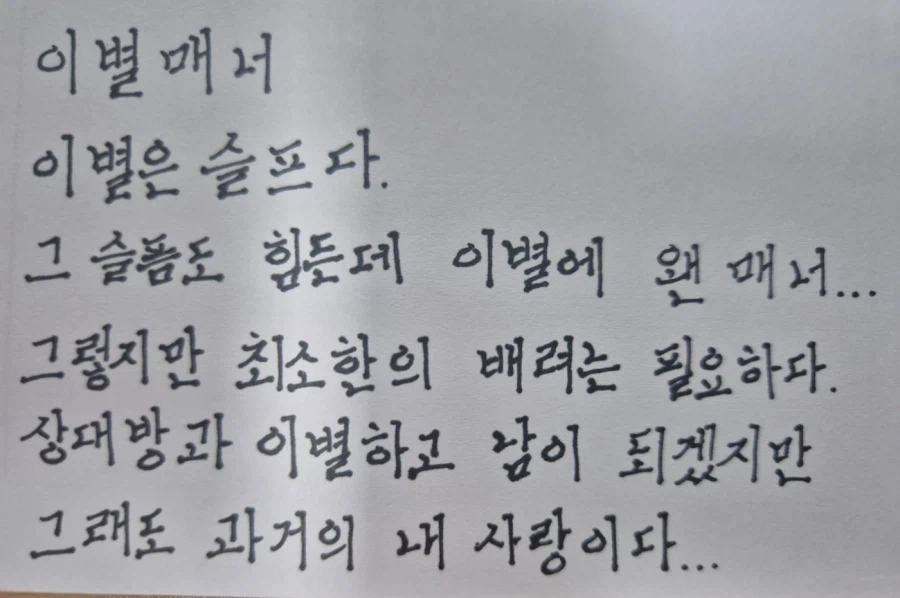 이별 매너
이별은 슬프다.
그 슬픔도 힘든데 이별에 왠 매너...
그렇지만 최소한의 배려는 필요하다.
상대방과 이별하고 남이 되겠지만
그래도 과거의 내 사랑이다...